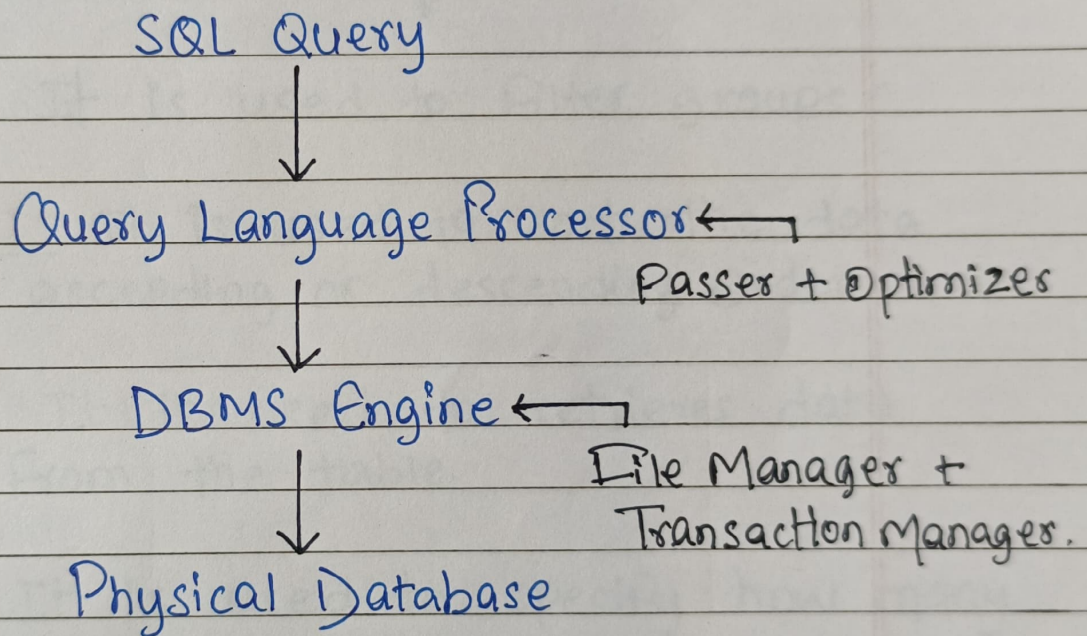 SQL Query
Query Language Processor
Passer + Optimizer
DBMS Engine
File Manager +
Transaction Manager.
Physical Database